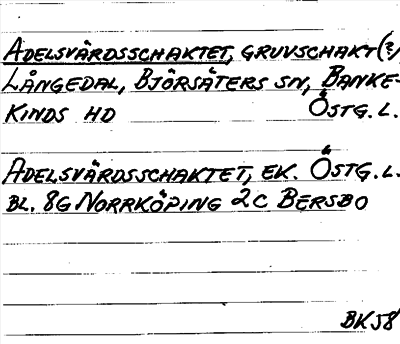 ADELSVÄRDSSCHAKTET, GRUVSCHAKT(?)
LÅNGEDAL, BJÖRSÄTERS SN, BANKE-
KINDS HD ÖSTG. L.
ADELSVÄRDSSCHAKTET, EK. ÖSTG. L.
BL. 8G NORRKÖPING 2C BERSBO
BK58